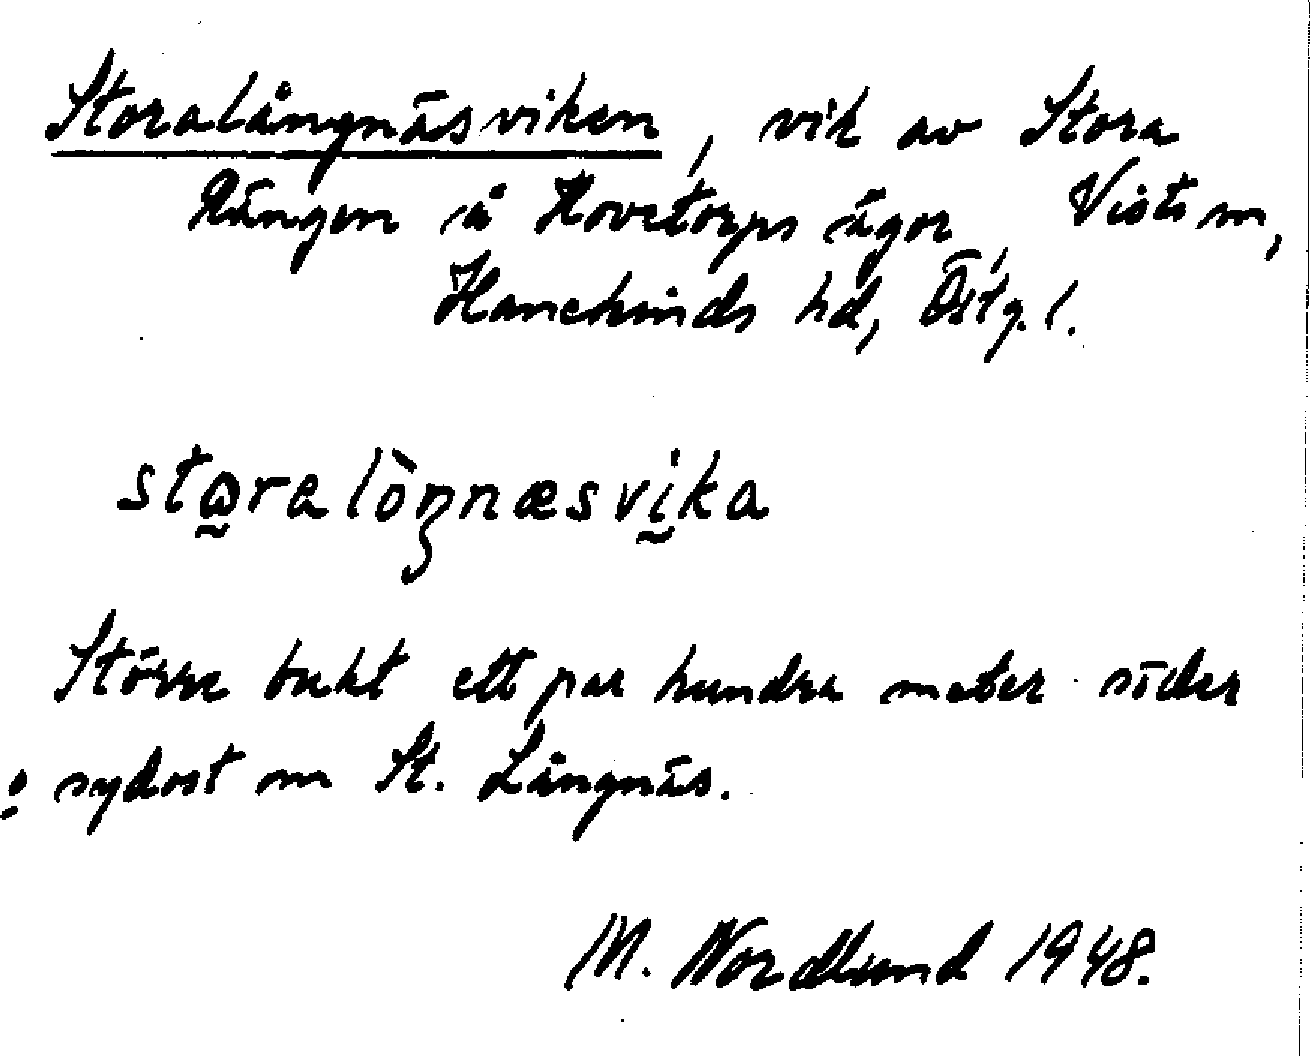 Storalångnäsviken, vik av Stora
Rängen å Hovetorps ägor, Vists sn,
Hanekinds hd, Östg. l.
storalòŋnæsvika
Större bukt ett par hundra meter söder
o sydost om St. Långnäs.
M. Nordlund 1948.